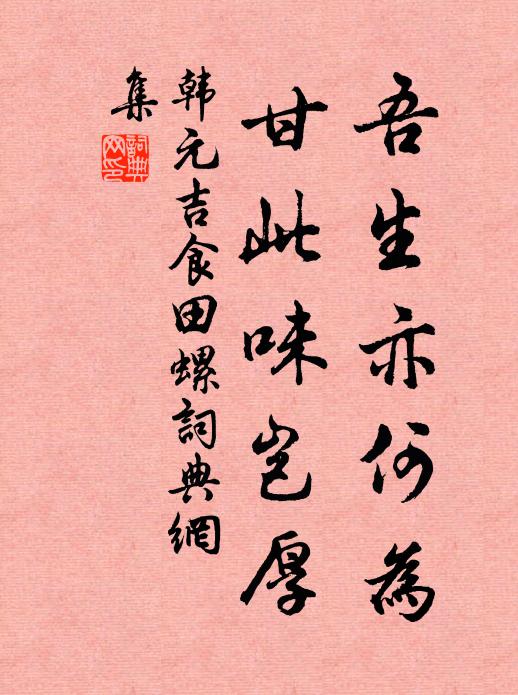 吾生亦何為
甘此味豈厚
韩元吉食田螺詞典網
集
詞典
网印